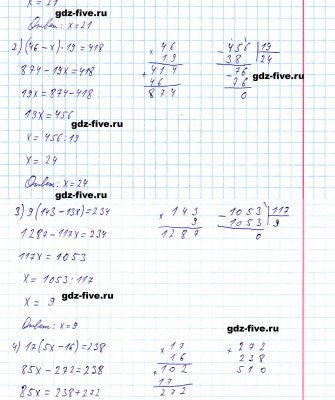 x = 21
gdz-five.ru
Ответ: x=21
2) (46 - x) · 19 = 418
874 - 19x = 418
19x = 874 - 418
19x = 456
x = 456 : 19
x = 24
Ответ: x = 24
× 46
19
+ 414
46
874
- 456 | 19
38 | 24
- 76
76
0
gdz-five.ru
gdz-five.ru
gdz-five.ru
3) 9(143 - 13x) = 234
1287 - 117x = 234
117x = 1053
x = 1053 : 117
x = 9
Ответ: x = 9
× 143
9
1287
- 1053 | 117
1053 | 9
0
gdz-five.ru
gdz-five.ru
gdz-five.ru
4) 17(5x - 16) = 238
85x - 272 = 238
85x = 238 + 272
× 17
16
+ 102
17
272
+ 272
238
510
gdz-five.ru